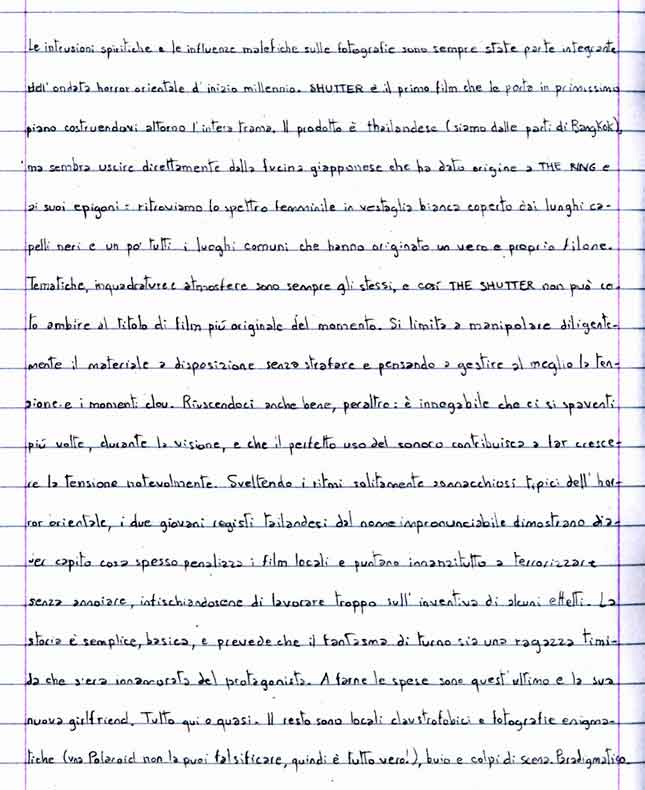 Le intrusioni spiritiche e le influenze malefiche sulle fotografie sono sempre state parte integrante
dell'ondata horror orientale d'inizio millennio. SHUTTER è il primo film che le porta in primissimo
piano costruendovi attorno l'intera trama. Il prodotto è thailandese (siamo dalle parti di Bangkok),
ma sembra uscire direttamente dalla fucina giapponese che ha dato origine a THE RING e
ai suoi epigoni: ritroviamo lo spettro femminile in vestaglia bianca coperto dai lunghi ca-
pelli neri e un po' tutti i luoghi comuni che hanno originato un vero e proprio filone.
Tematiche, inquadrature e atmosfere sono sempre gli stessi, e così THE SHUTTER non può ce-
to ambire al titolo di film più originale del momento. Si limita a manipolare diligente-
mente il materiale a disposizione senza strafare e pensando a gestire al meglio la ten-
zione e i momenti clou. Riuscendoci anche bene, peraltro: è innegabile che ci si spaventi
più volte, durante la visione, e che il perfetto uso del sonoro contribuisca a far cresce-
re la tensione notevolmente. Sveltendo i ritmi solitamente sonnacchiosi tipici dell'hor-
ror orientale, i due giovani registi tailandesi dal nome impronunciabile dimostrano d'a-
ver capito cosa spesso penalizza i film locali e puntano innanzitutto a terrorizzare
senza annoiare, infischiandosene di lavorare troppo sull'inventiva di alcuni effetti. La
storia è semplice, basica, e prevede che il fantasma di turno sia una ragazza timi-
da che s'era innamorata del protagonista. A farne le spese sono quest'ultimo e la sua
nuova girlfriend. Tutto qui o quasi. Il resto sono locali claustrofobici e fotografie enigma-
tiche (una Polaroid non la puoi falsificare, quindi è tutto vero!), buio e colpi di scena. Paradigmatico.